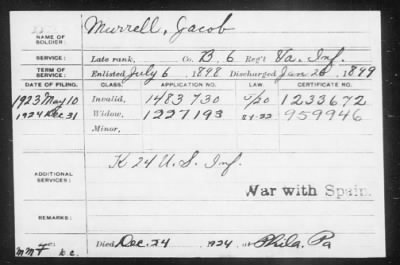 NAME OF SOLDIER: Murrell, Jacob
SERVICE: Late rank, Co. B. 6 Reg't Va. Inf.
TERM OF SERVICE: Enlisted July 6 1898 Discharged Jan 26, 1899
DATE OF FILING. CLASS. APPLICATION NO. LAW. CERTIFICATE NO.
1923 May 10 Invalid, 1483730 5/20 1233672
1924 Dec 31 Widow, 1227193 St-22 959946
Minor,
ADDITIONAL SERVICES: K 24 U.S. Inf.
War with Spain.
REMARKS:
Died Dec. 24 1924, at Phila, Pa